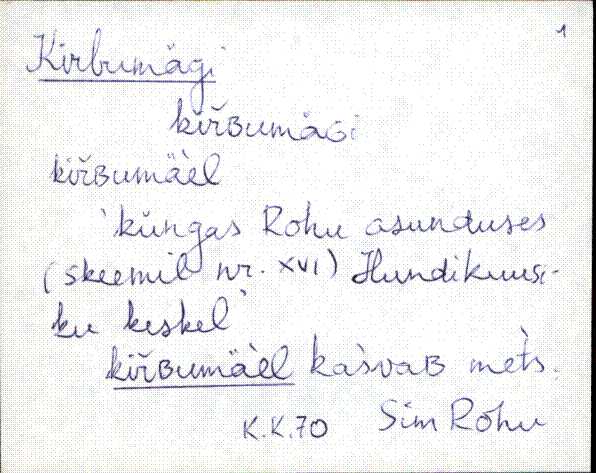 1
Kirbumägi
kiřʙumäɢi
kiřʙumäèl
'küngas Rohu asunduses
(skeemil nr. XVI) Hundikuusi-
ku keskel'
kiřʙumäèl kasvaʙ mets.
K.K.70 Sim Rohu